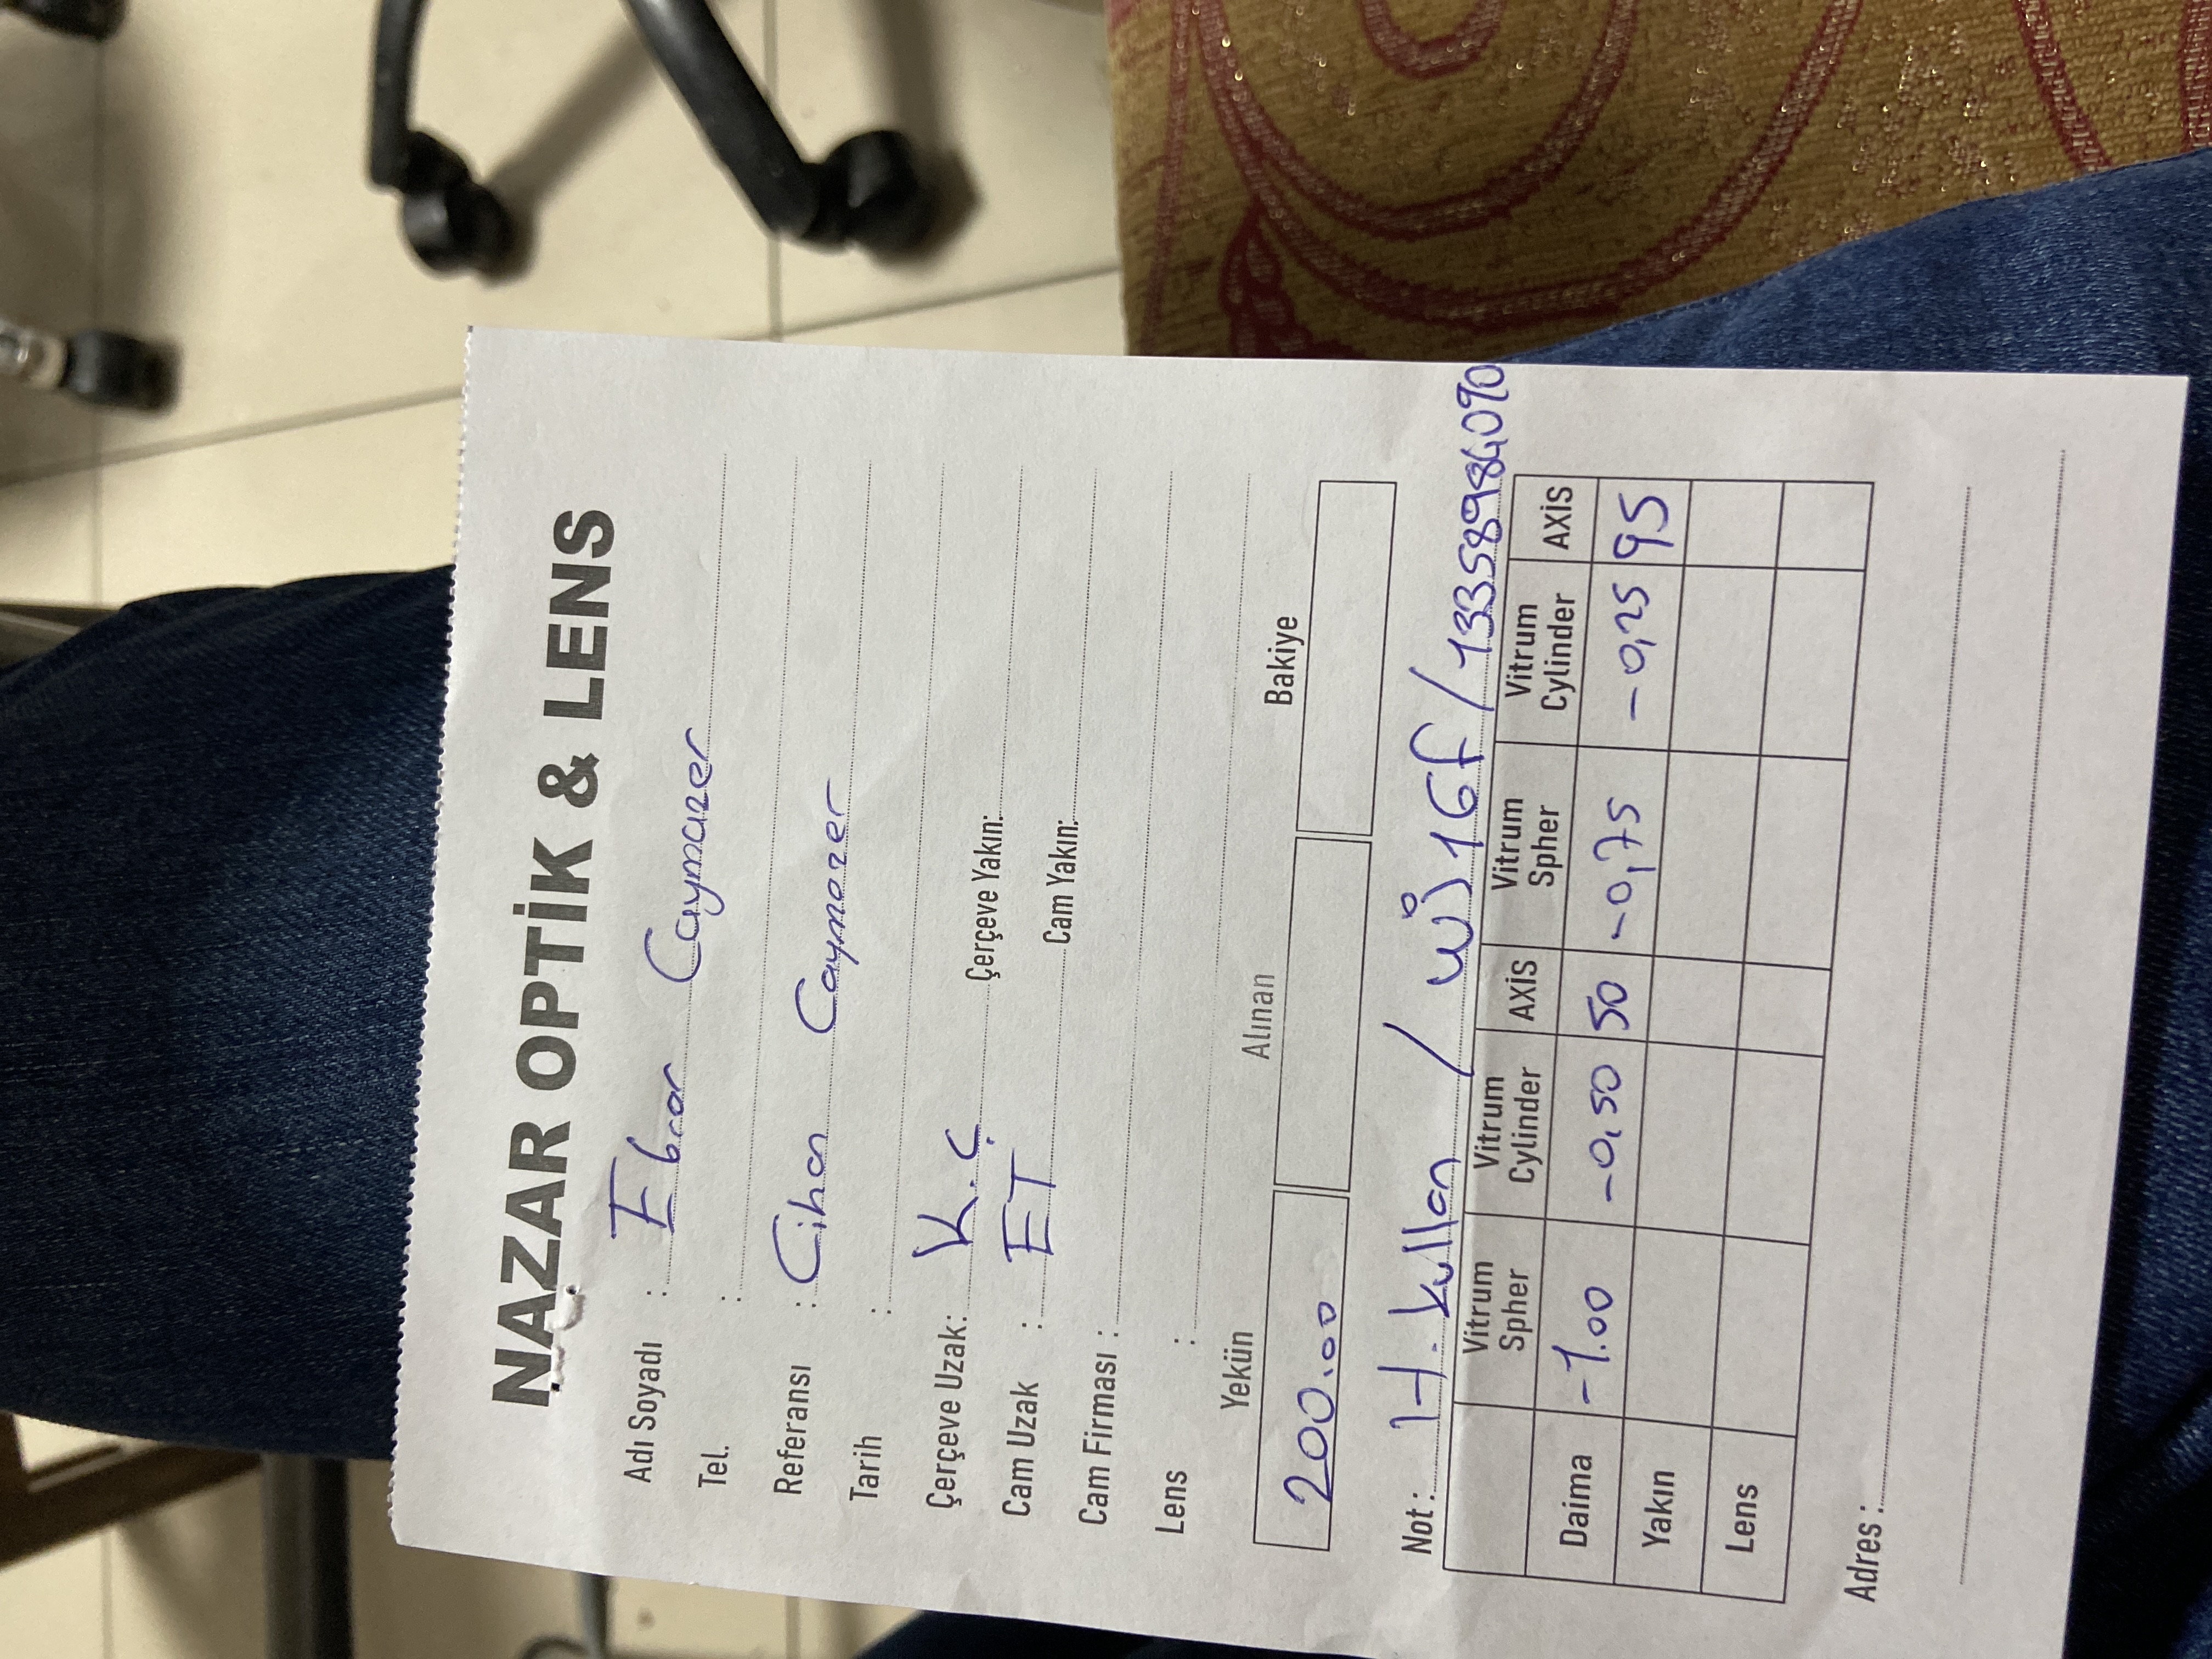 NAZAR OPTİK & LENS
Adı Soyadı : Ebrar Caymazer
Tel. :
Referansı : Cihan Caymazer
Tarih :
Çerçeve Uzak: K.Ç Çerçeve Yakın:
Cam Uzak : ET Cam Yakın:
Cam Firması :
Lens :
Yekün Alınan Bakiye
200.00
Not: H. kullan / 13358984090
Vitrum Spher Vitrum Cylinder AXİS Vitrum Spher Vitrum Cylinder AXİS
Daima -1.00 -0,50 50 -0,75 -0,25 95
Yakın
Lens
Adres :